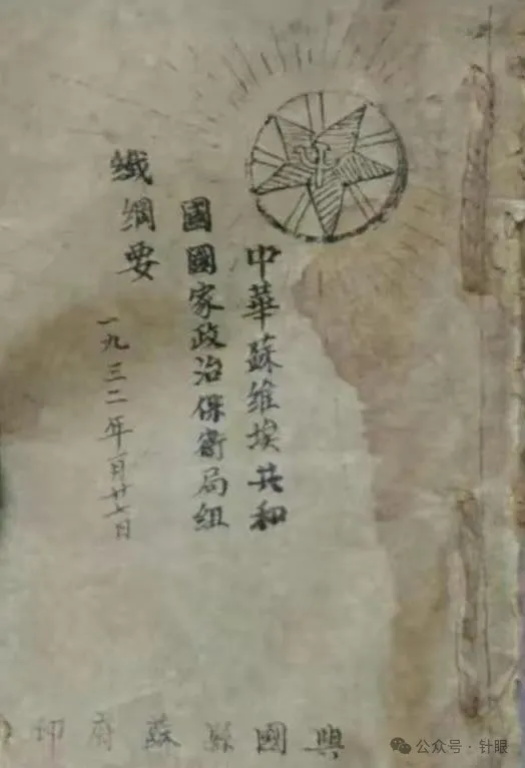 中華蘇維埃共和
國國家政治保衛局組
織綱要
一九三二年一月廿七日
興國縣蘇府印
公众号·针眼